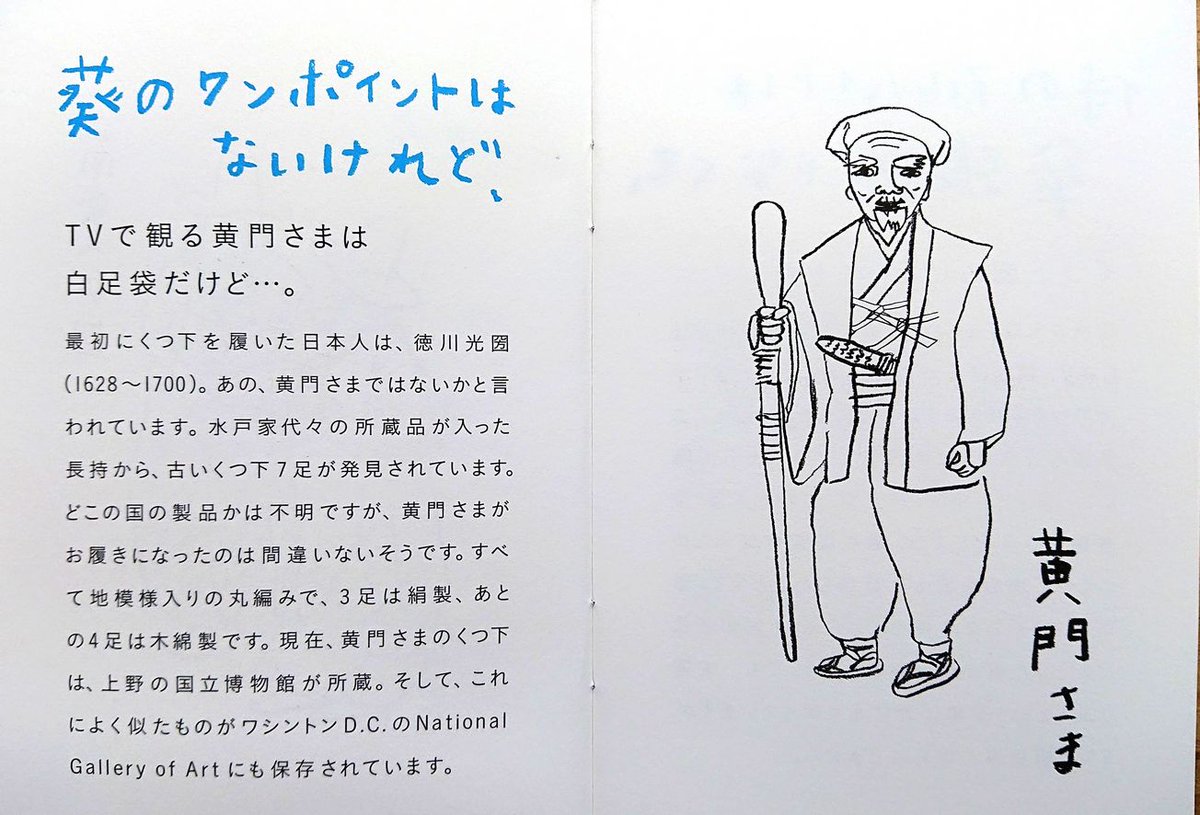 葵のワンポイントは
ないけれど、
TVで観る黄門さまは
白足袋だけど…。
最初にくつ下を履いた日本人は、徳川光圀
(1628〜1700)。あの、黄門さまではないかと言
われています。水戸家代々の所蔵品が入った
長持から、古いくつ下7足が発見されています。
どこの国の製品かは不明ですが、黄門さまが
お履きになったのは間違いないそうです。すべ
て地模様入りの丸編みで、3足は絹製、あと
の4足は木綿製です。現在、黄門さまのくつ下
は、上野の国立博物館が所蔵。そして、これ
によく似たものがワシントンD.C.のNational
Gallery of Artにも保存されています。
黄門さま